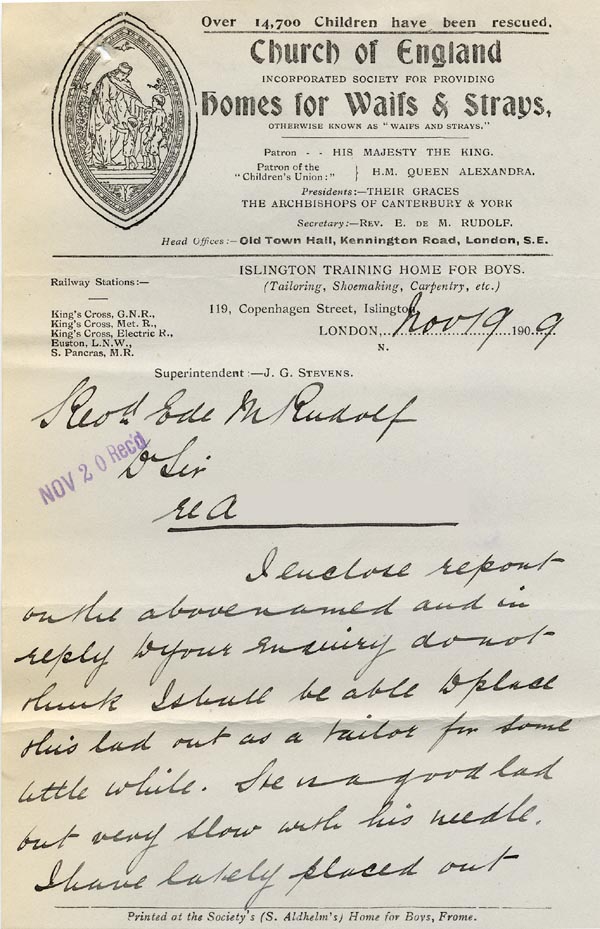 Over 14,700 Children have been rescued.
Church of England
INCORPORATED SOCIETY FOR PROVIDING
Homes for Waifs & Strays,
OTHERWISE KNOWN AS "WAIFS AND STRAYS."
Patron - - HIS MAJESTY THE KING.
Patron of the "Children's Union:" } H.M. QUEEN ALEXANDRA.
Presidents:—THEIR GRACES
THE ARCHBISHOPS OF CANTERBURY & YORK
Secretary:—REV. E. DE M. RUDOLF.
Head Offices:—Old Town Hall, Kennington Road, London, S.E.
ISLINGTON TRAINING HOME FOR BOYS.
(Tailoring, Shoemaking, Carpentry, etc.)
Railway Stations:—
King's Cross, G.N.R.,
King's Cross, Met. R.,
King's Cross, Electric R.,
Euston, L.N.W.,
S. Pancras, M.R.
119, Copenhagen Street, Islington,
LONDON, Nov 19 1909
N.
Superintendent:—J. G. STEVENS.
Revd E de M Rudolf
NOV 20 Rec'd
D Sir
re A
I enclose report
on the abovenamed and in
reply to your enquiry do not
think I shall be able to place
this lad out as a tailor for some
little while. He is a good lad
but very slow with his needle.
I have lately placed out
Printed at the Society's (S. Aldhelm's) Home for Boys, Frome.